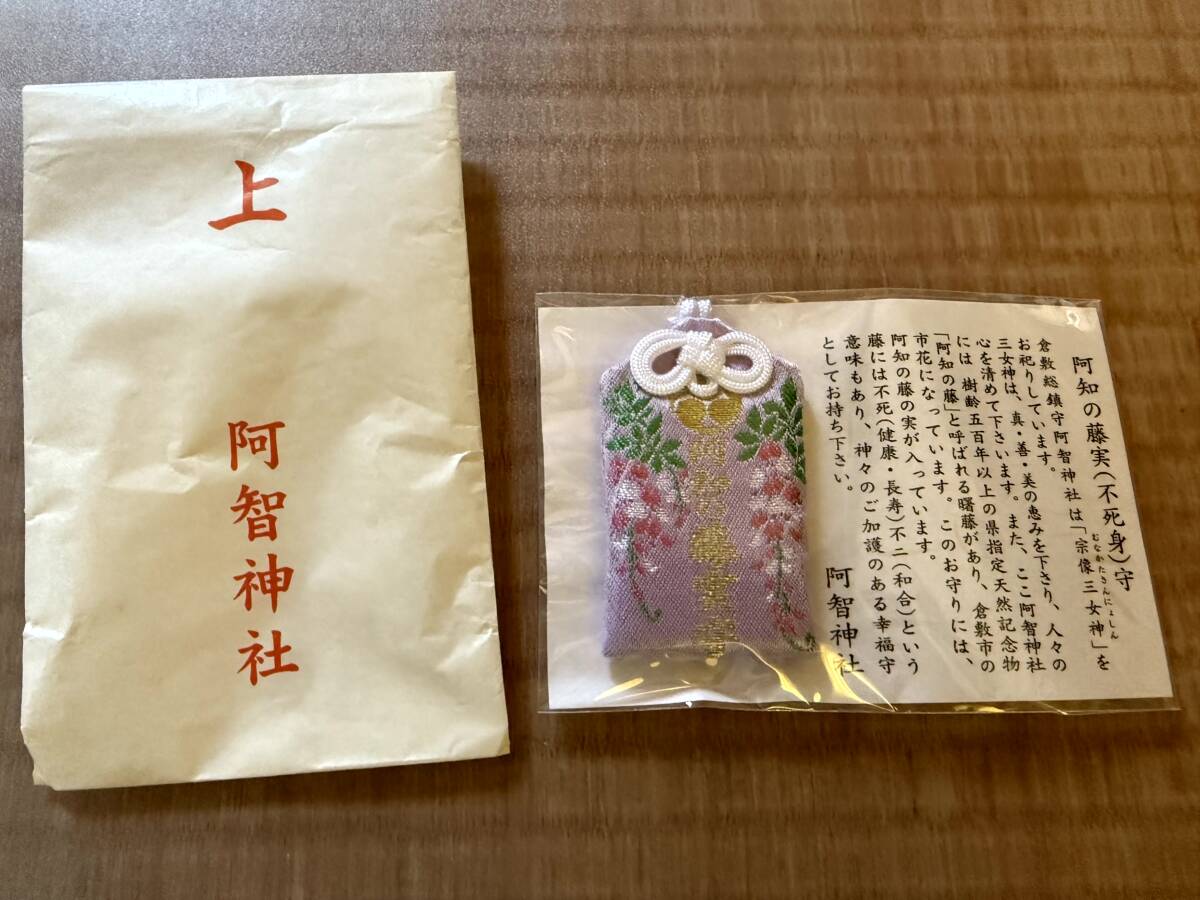 上
阿智神社
阿知の藤実(不死身)守
倉敷総鎮守阿智神社は「宗像三女神」を
むなかたさんにょしん
お祀りしています。
三女神は、真・善・美の恵みを下さり、人々の
心を清めて下さいます。また、ここ阿智神社
には 樹齢五百年以上の県指定天然記念物
「阿知の藤」と呼ばれる曙藤があり、倉敷市の
市花になっています。このお守りには、
阿知の藤の実が入っています。
藤には不死(健康・長寿)不二(和合)という
意味もあり、神々のご加護のある幸福守
としてお持ち下さい。
阿智神社
阿知の藤実守